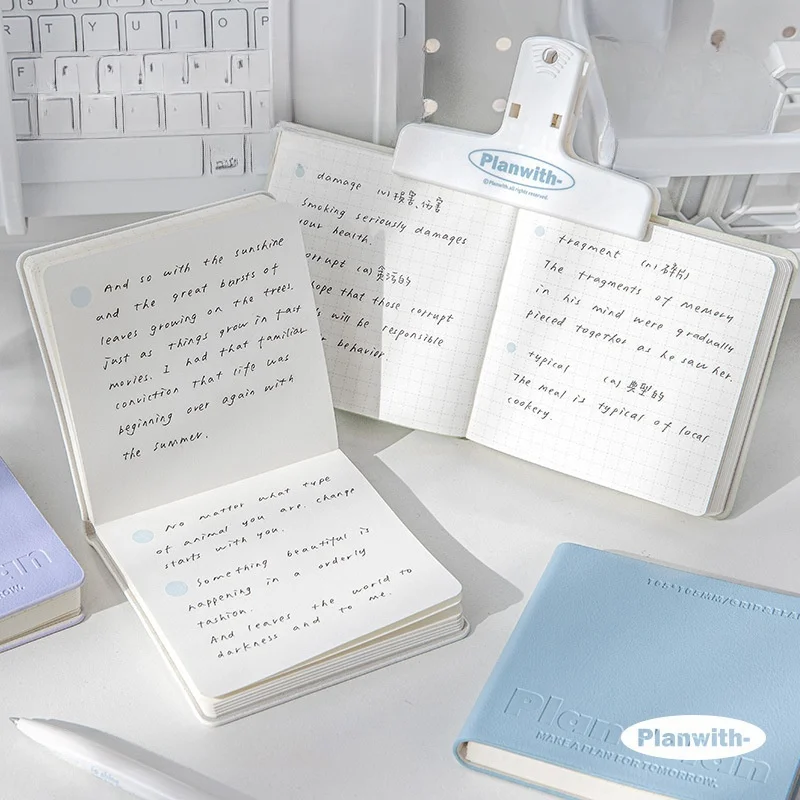 O P
Planwith-
©Planwith all rights reserved.
And so with the sunshine
and the great bursts of
leaves growing on the trees.
just as things grow in fast
movies. I had that familiar
conviction that life was
beginning over again with
the summer.
No matter what type
of animal you are. change
starts with you.
Something beautiful is
happening in a orderly
fashion.
And leaves the world to
darkness and to me.
damage (v) 损害、伤害
Smoking seriously damages
your health.
corrupt (a) 贪污的
hope that those corrupt
will be responsible
behavior
fragment (n) 碎片
The fragments of memory
in his mind were gradually
pieced together as he saw her.
typical (a) 典型的
The meal is typical of local
cookery.
Plan
MAKE A PLAN FOR TOMORROW.
Planwith-